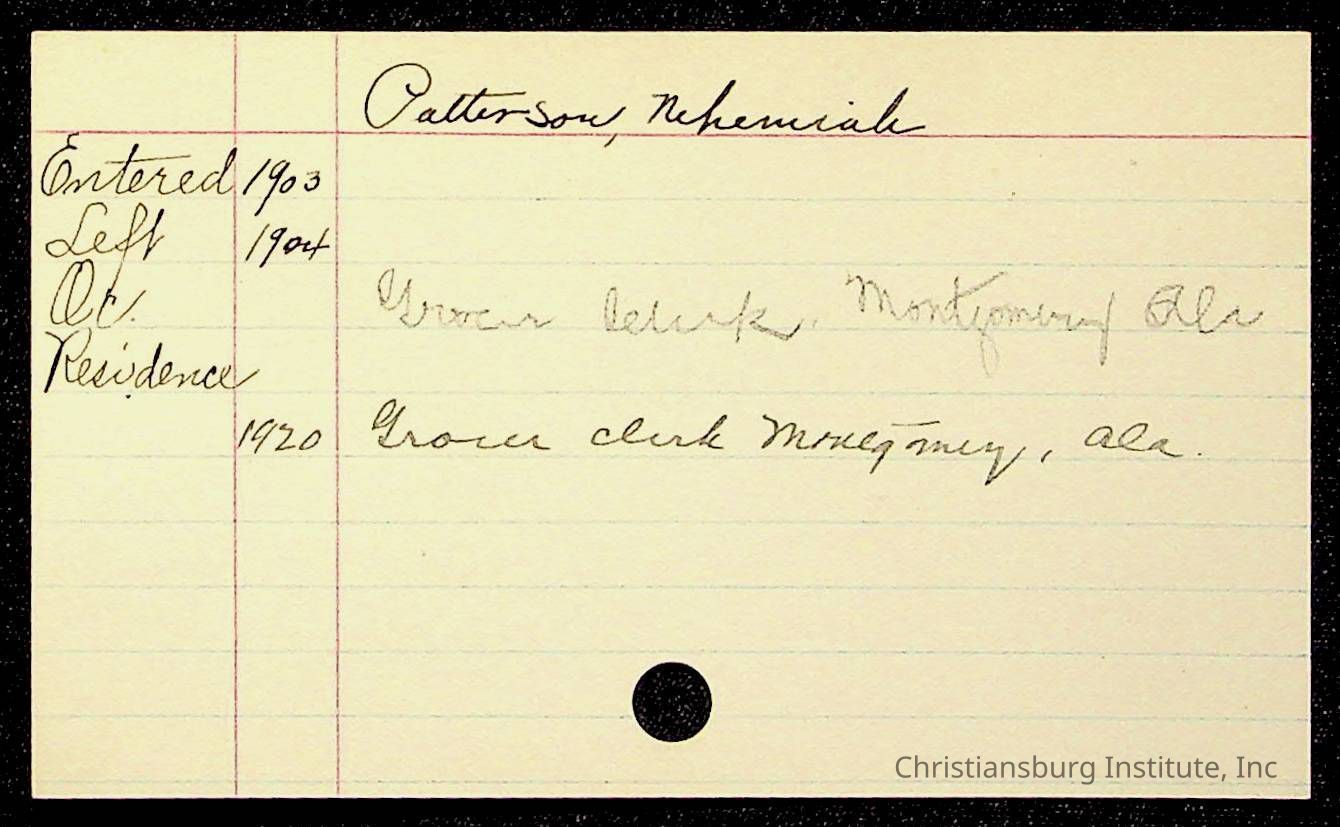 Patterson, Nehemiah
Entered 1903
Left 1904
Oc. Grocer Clerk, Montgomery Ala
Residence
1920 Grocer clerk Montgomery, Ala.
Christiansburg Institute, Inc